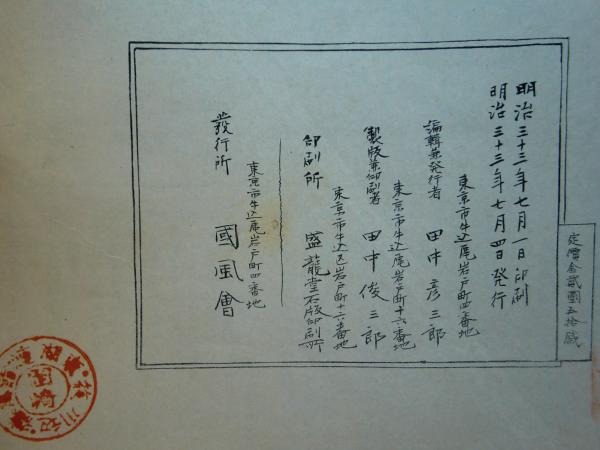 明治三十三年七月一日印刷
明治三十三年七月四日発行
定價金貳圓五拾錢
東京市牛込區岩戸町四番地
編輯兼発行者 田中彦三郎
東京市牛込區岩戸町十六番地
製版兼印刷者 田中俊三郎
東京市牛込区岩戸町十六番地
印刷所 盛龍堂石版印刷所
東京市牛込區岩戸町四番地
發行所 國風會